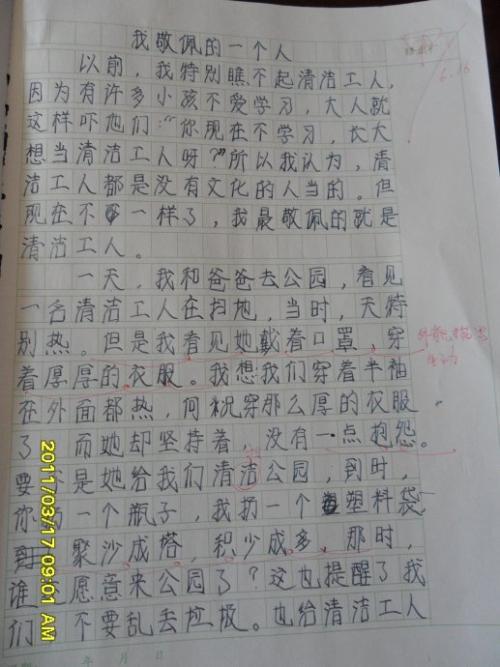 我敬佩的一个人
以前，我特别瞧不起清洁工人，
因为有许多小孩不爱学习，大人就
这样吓他们：“你现在不学习，长大
想当清洁工人呀？”所以我认为，清
洁工人都是没有文化的人当的。但
现在不一样了，我最敬佩的就是
清洁工人。
一天，我和爸爸去公园，看见
一名清洁工人在扫地，当时，天特
别热。但是我看见她戴着口罩，穿
着厚厚的衣服。我想我们穿着半袖
在外面都热，何况穿那么厚的衣服
了 而她却坚持着，没有一点抱怨。
要 是她给我们清洁公园，到时，
你 一个瓶子，我扔一个塑料袋，
聚沙成塔，积少成多，那时，
谁 愿意来公园了？这也提醒了我
们 不要乱丢垃圾。也给清洁工人
年 月 日
6.16
外貌描写
生动
2011/03/17 09:01 AM